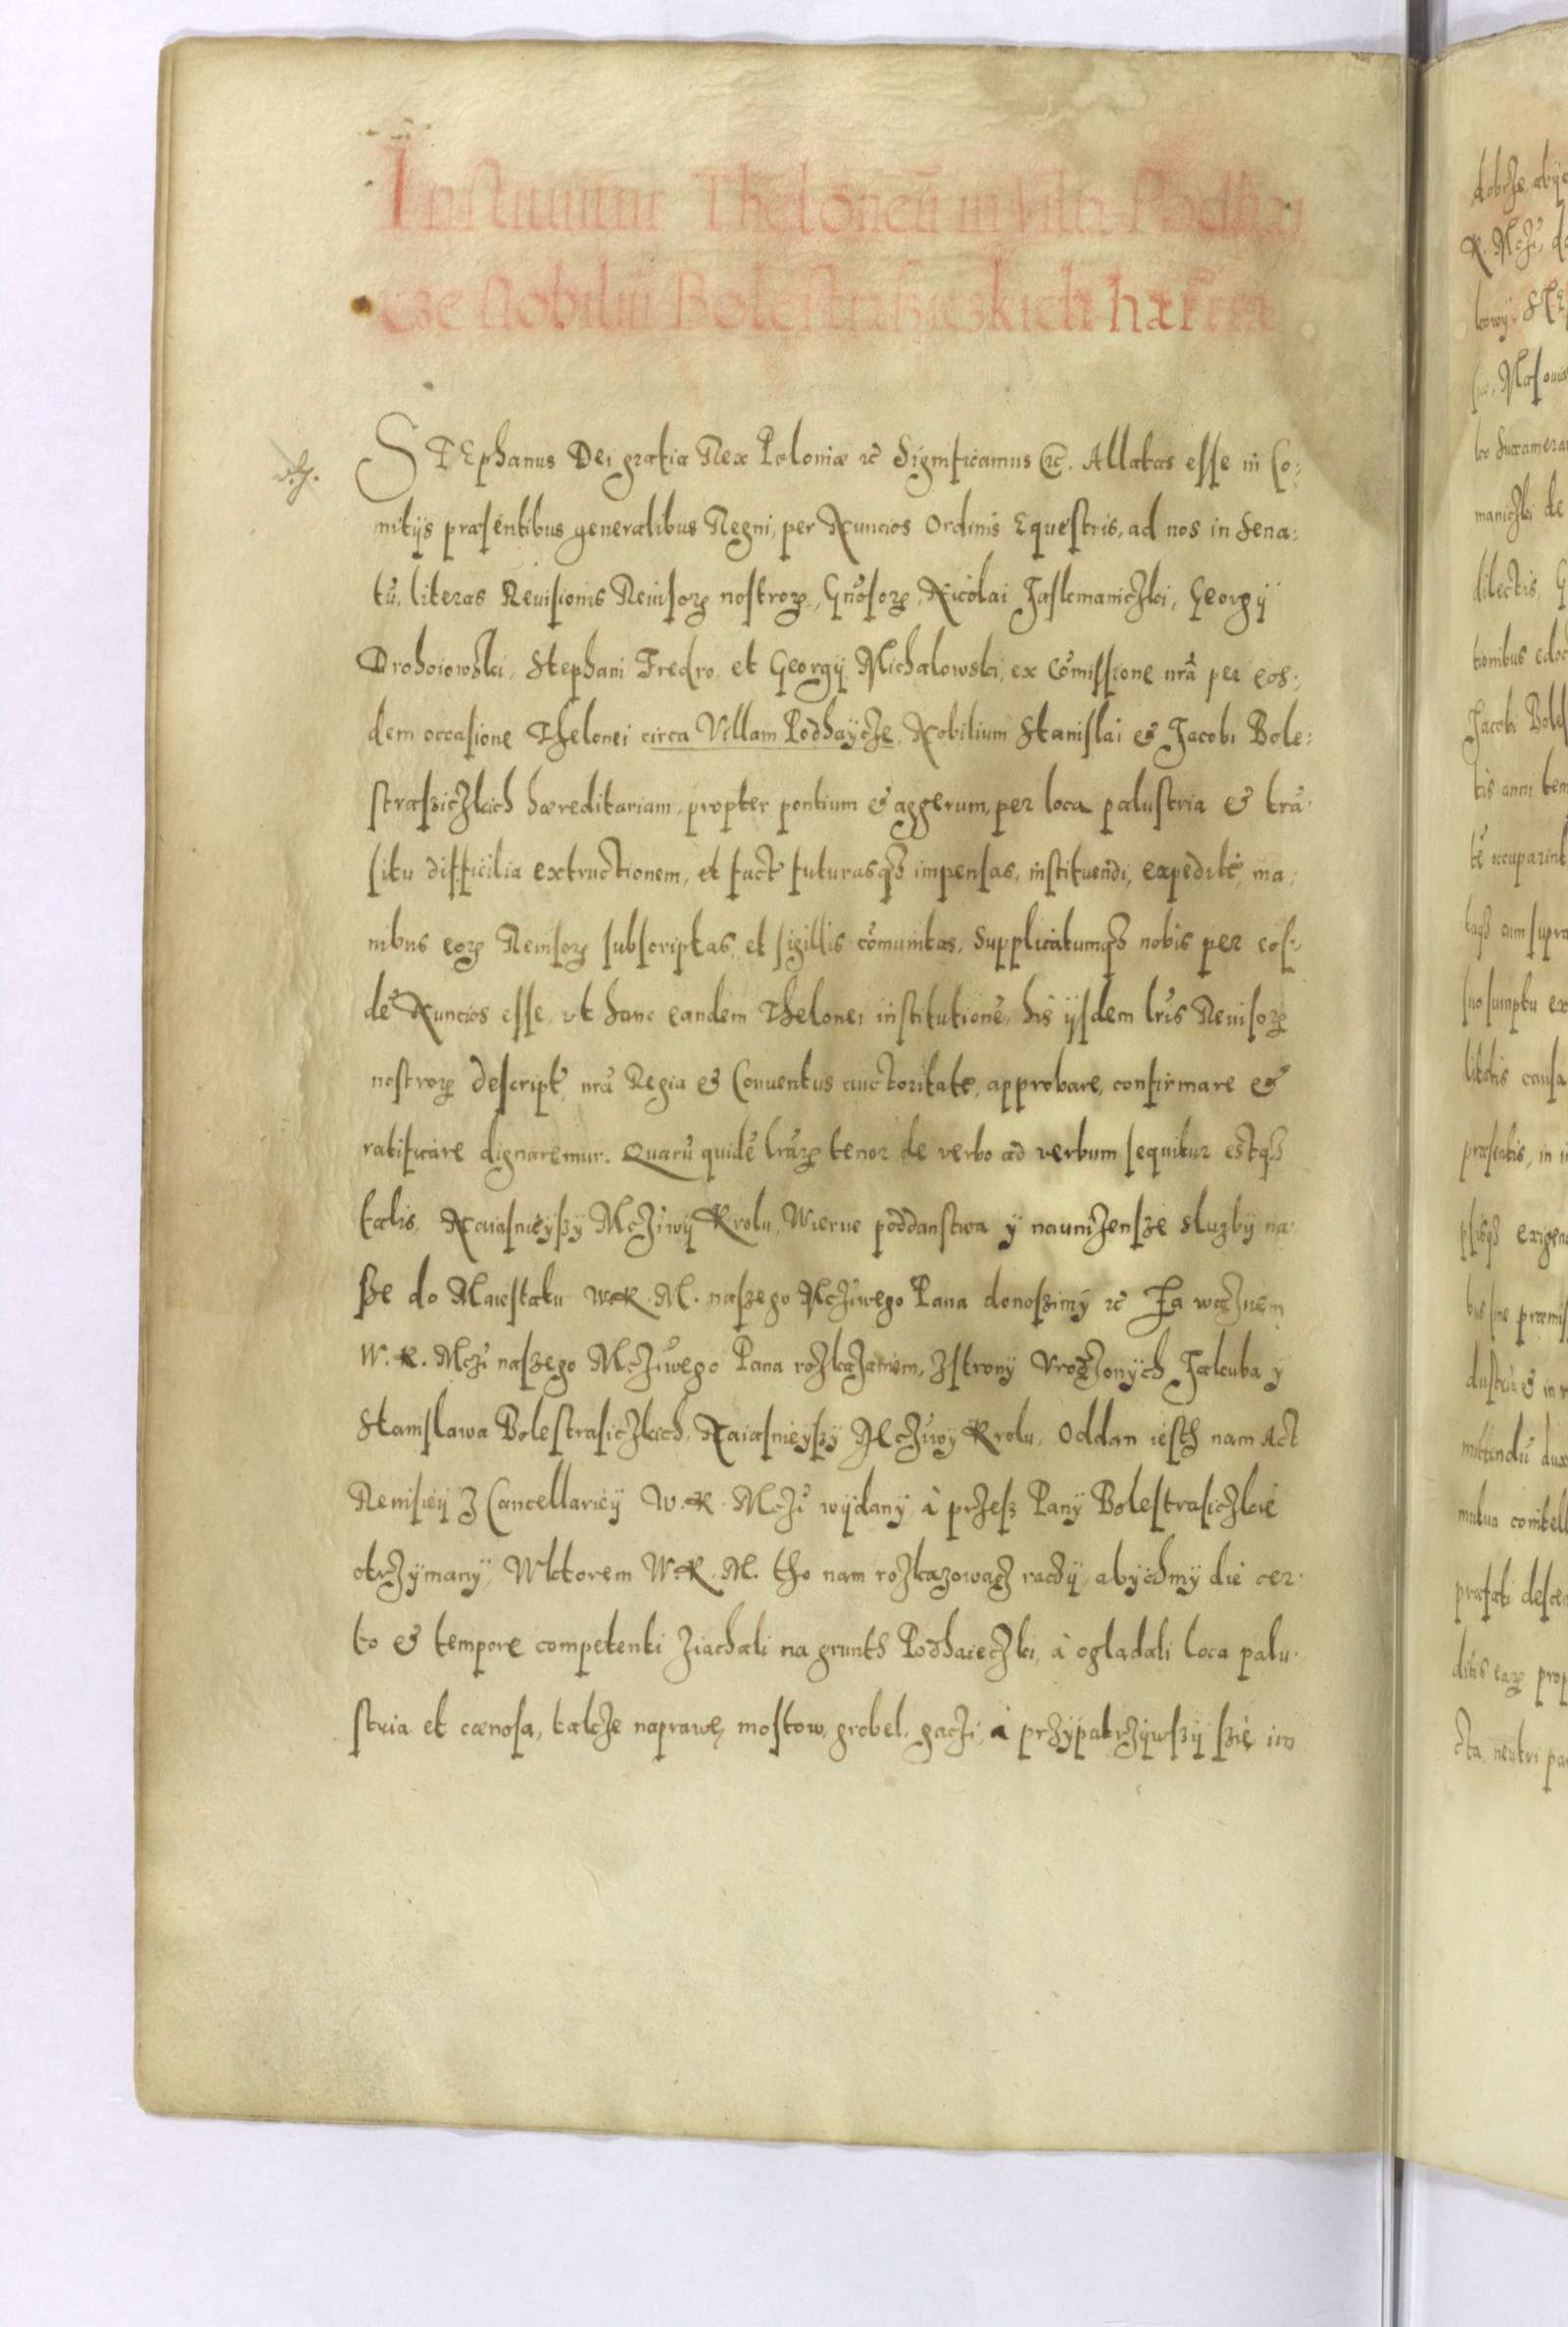 Instituitur Theloneū in Villa Podhay
cze Nobiliū Bolestrasziczkich hær
STEphanus Dei gratia Rex Poloniæ ꝛc̄ Significamus ꝛc̄. Allatas esse in Co:
mitijs præsentibus generalibus Regni, per Nuncios Ordinis Equestris, ad nos in Sena:
tū, literas Reuisionis Reuisoꝝ nostroꝝ, Gn̄osoꝝ, Nicolai Jaslemaniczki, Georgÿ
Drohoiowski, Stephani Fredro, et Georgij Michalowski, ex Com̄issione nr̄a per eos:
dem occasione Thelonei circa Villam Podhaycze, Nobilium Stanislai & Jacobi Bole:
strasziczkich hæreditariam, propter pontium & aggerum, per loca palustria & trā:
situ difficilia extructionem, et fact futurasqꝫ impensas, instituendi, expedite, ma:
nibus eoꝝ Reuisoꝝ subscriptas, et sigillis com̄unitas, Supplicatumqꝫ nobis per eos:
dē Nuncios esse, vt hanc eandem Thelonei institutionē, his ijsdem lr̄is Reuisoꝝ
nostroꝝ descript, nr̄a Regia & Conuentus auctoritate, approbare, confirmare &
ratificare dignaremur. Quarū quidē lr̄aꝝ tenor de verbo ad verbum sequitur estqꝫ
talis, Naiasnieyszy Mcziwÿ Krolu, Wierne poddanstwa ÿ naunizensze sluzbÿ na:
sze do Maiestatu W. K. M. naszego Mcziwego Pana donoszimÿ ꝛc̄ Za wcznem
W. K. Mczi naszego Mcziwego Pana rozkazaniem, z strony Vrodzonÿch Jakuba ÿ
Stanislawa Bolestrasiczkich, Naiasnieyszÿ Mcziwy Krolu, Oddan iesth nam Act
Reuisieÿ z Cancellarieÿ W. K. Mczi wÿdanÿ à przesz Panÿ Bolestrasiczkie
otrzÿmanÿ, Wktorem W. K. M. tho nam rozkazowacz raczÿ, abÿchmÿ die cer:
to & tempore competenti ziachali na grunth Podhaieczki, à ogladali loca palu:
stria et cænosa, takze naprawe mostow, grobel, gaczi, à przÿpatrzÿwszÿ szie im